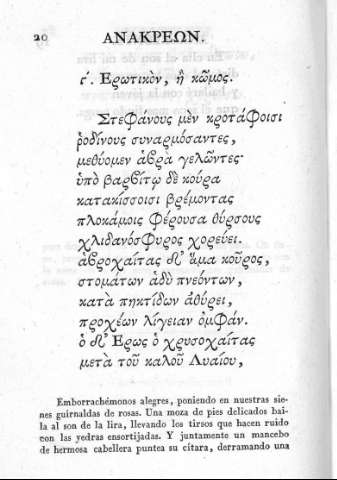 20 ΑΝΑΚΡΕΩΝ.
ϛ΄. Ερωτικὸν, ἢ κῶμος.
Στεφάνους μὲν κροτάφοισι
ῥοδίνους συναρμόσαντες,
μεθύομεν ἁβρὰ γελῶντες·
ὑπὸ βαρβίτῳ δὲ κούρα
κατακίσσοισι βρέμοντας
πλοκάμοις φέρουσα θύρσους
χλιδανόσφυρος χορεύει.
ἁβροχαίτας δ' ἅμα κοῦρος,
στομάτων ἁδὺ πνεόντων,
κατὰ πηκτίδων ἀθύρει,
προχέων λίγειαν ὀμφάν.
ὁ δ' Ερως ὁ χρυσοχαίτας
μετὰ τοῦ καλοῦ Λυαίου,
Emborrachémonos alegres, poniendo en nuestras sie-
nes guirnaldas de rosas. Una moza de pies delicados bai-
la al son de la lira, llevando los tirsos que hacen ruido
con las yedras ensortijadas. Y juntamente un mancebo
de hermosa cabellera puntea su cítara, derramando una